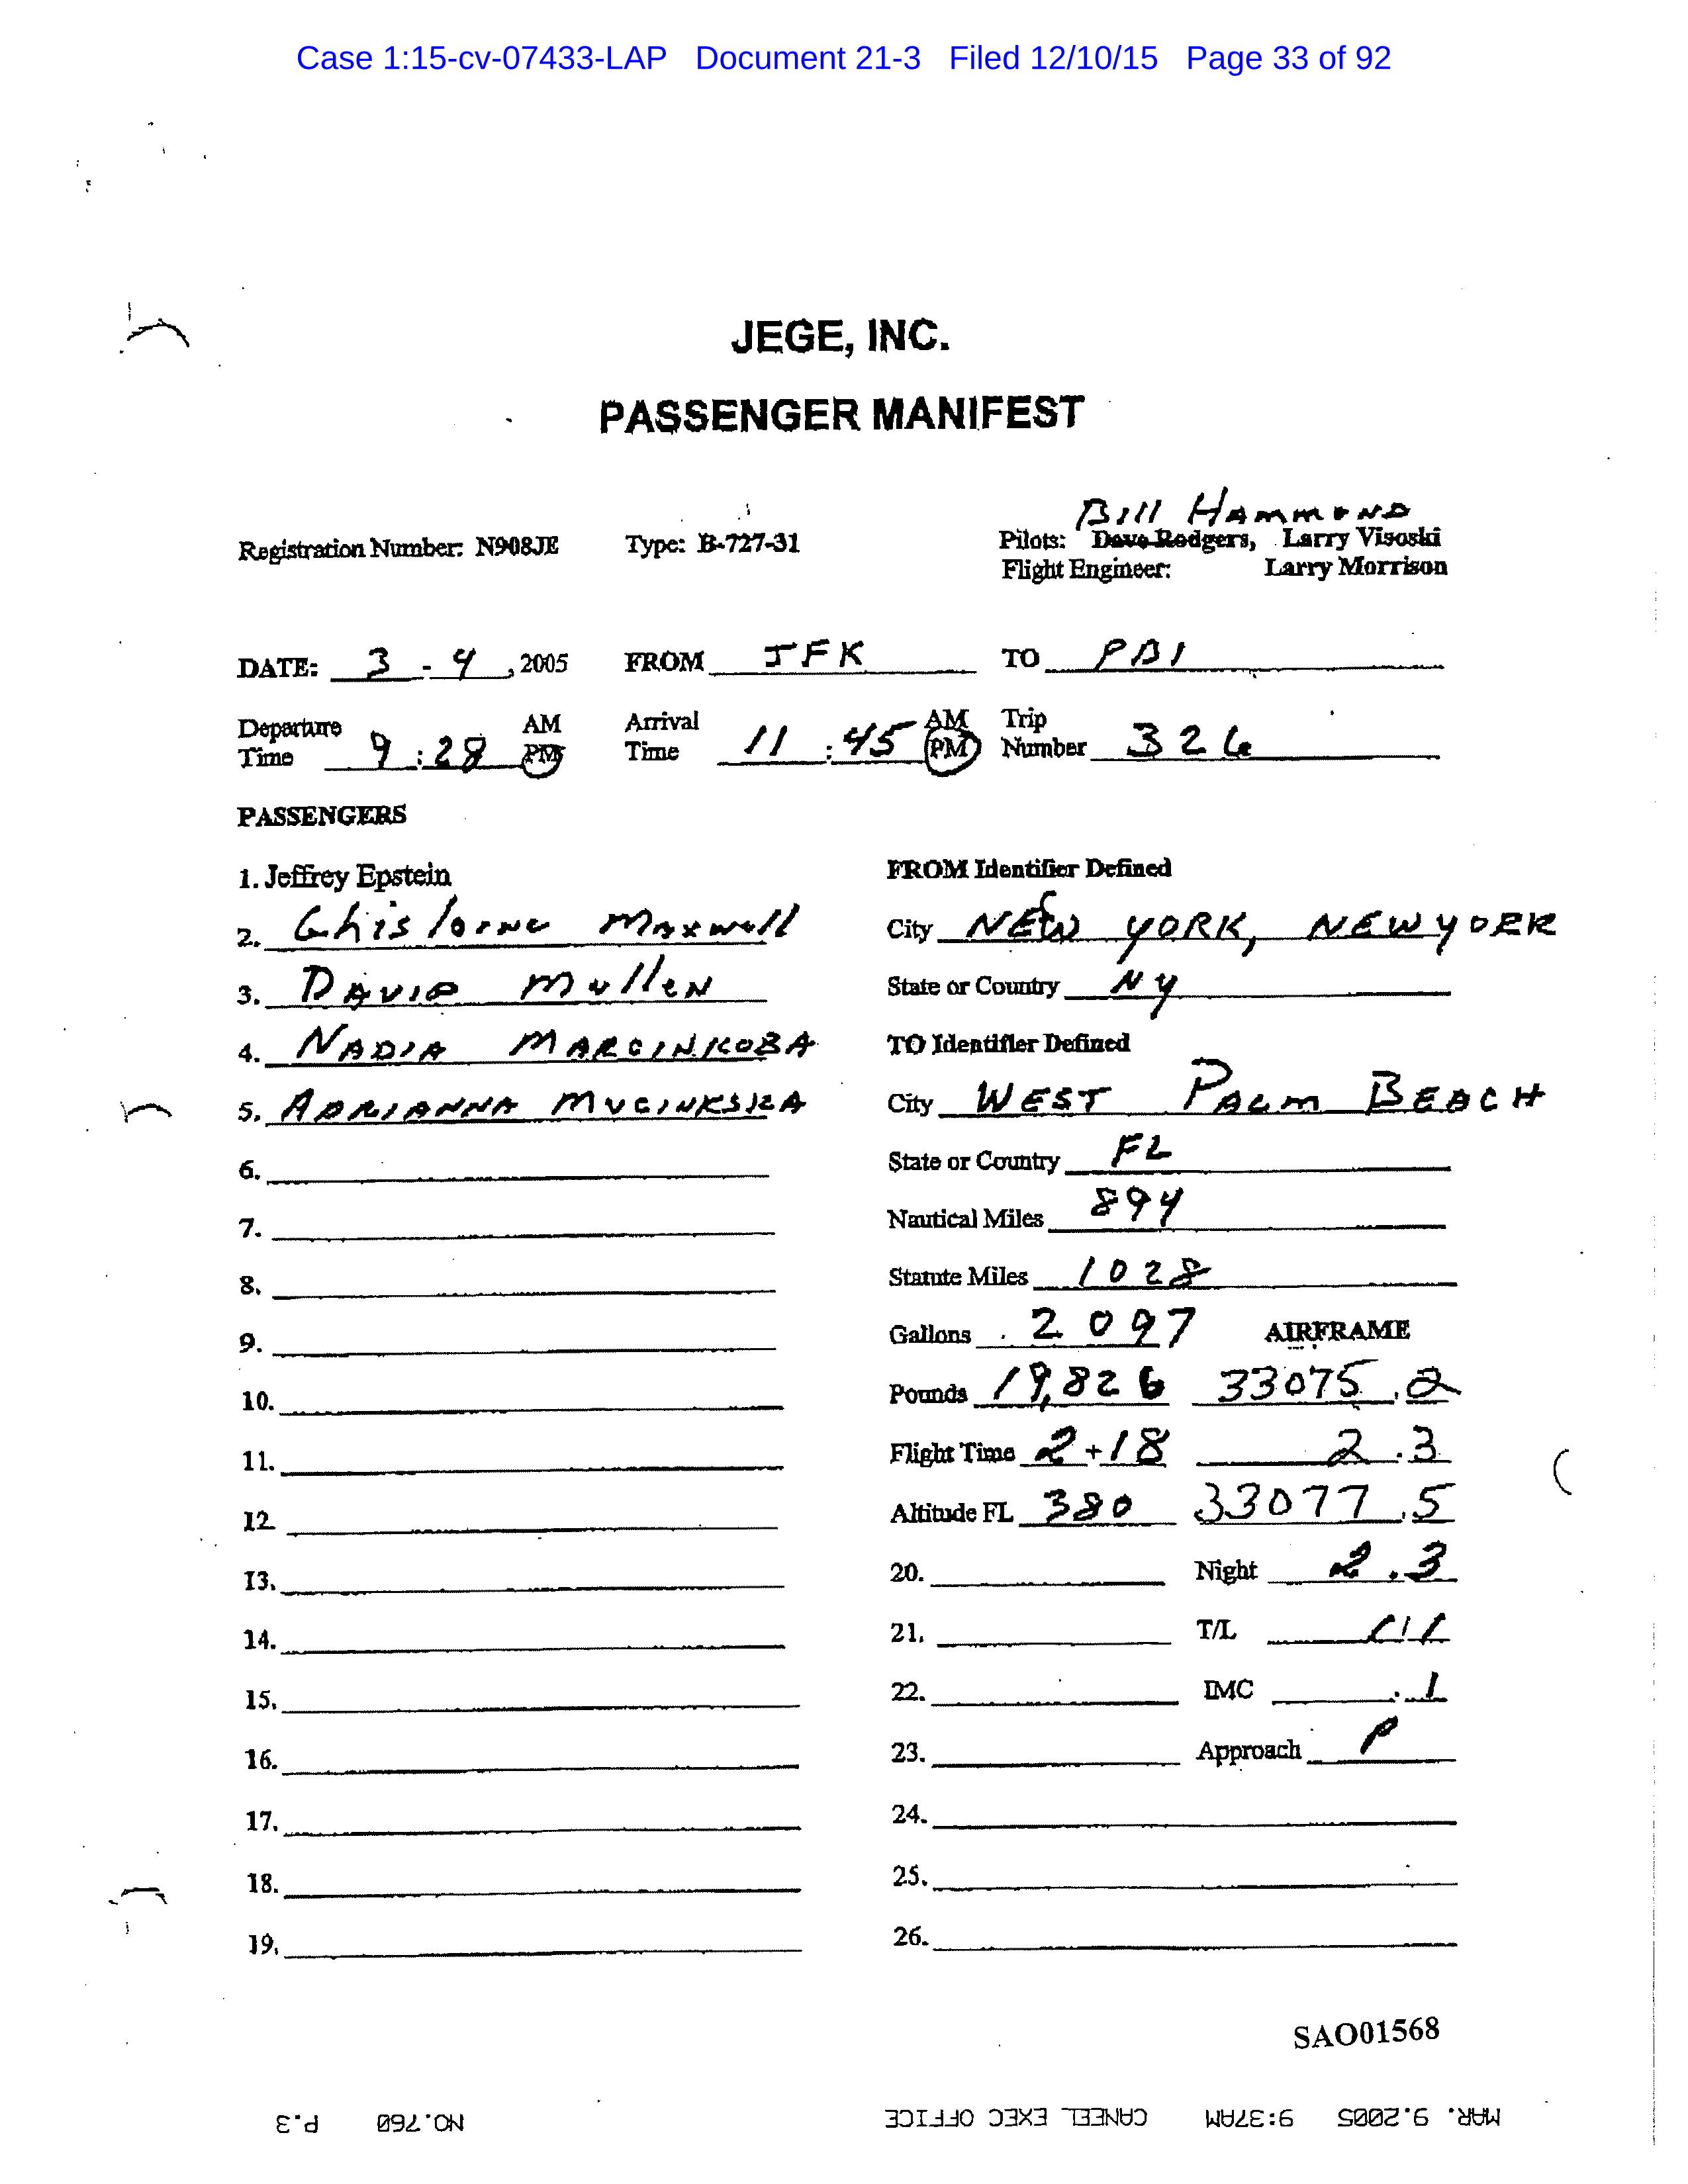 Case 1:15-cv-07433-LAP Document 21-3 Filed 12/10/15 Page 33 of 92
JEGE, INC.
PASSENGER MANIFEST
Bill Hammond
Registration Number: N908JE Type: B-727-31 Pilots: Dave Rodgers, Larry Visoski
Flight Engineer: Larry Morrison
DATE: 3 - 4, 2005 FROM JFK TO PBI
Departure Time 9:28 AM PM Arrival Time 11:45 AM PM Trip Number 326
PASSENGERS
1. Jeffrey Epstein
2. Ghislaine Maxwell
3. DAVID MulleN
4. NADIA MARCINKOBA
5. ADRIANNA MUCINKSKA
6.
7.
8.
9.
10.
11.
12.
13.
14.
15.
16.
17.
18.
19.
FROM Identifier Defined
City NEW YORK, NEWYORK
State or Country NY
TO Identifier Defined
City WEST PALM BEACH
State or Country FL
Nautical Miles 894
Statute Miles 1028
Gallons 2097 AIRFRAME
Pounds 19,826 33075.2
Flight Time 2+18 2.3
Altitude FL 380 33077.5
20. Night 2.3
21. T/L 1/1
22. IMC .1
23. Approach P
24.
25.
26.
SAO01568
MAR. 9.2005 9:37AM CANEEL EXEC OFFICE NO.760 P.3